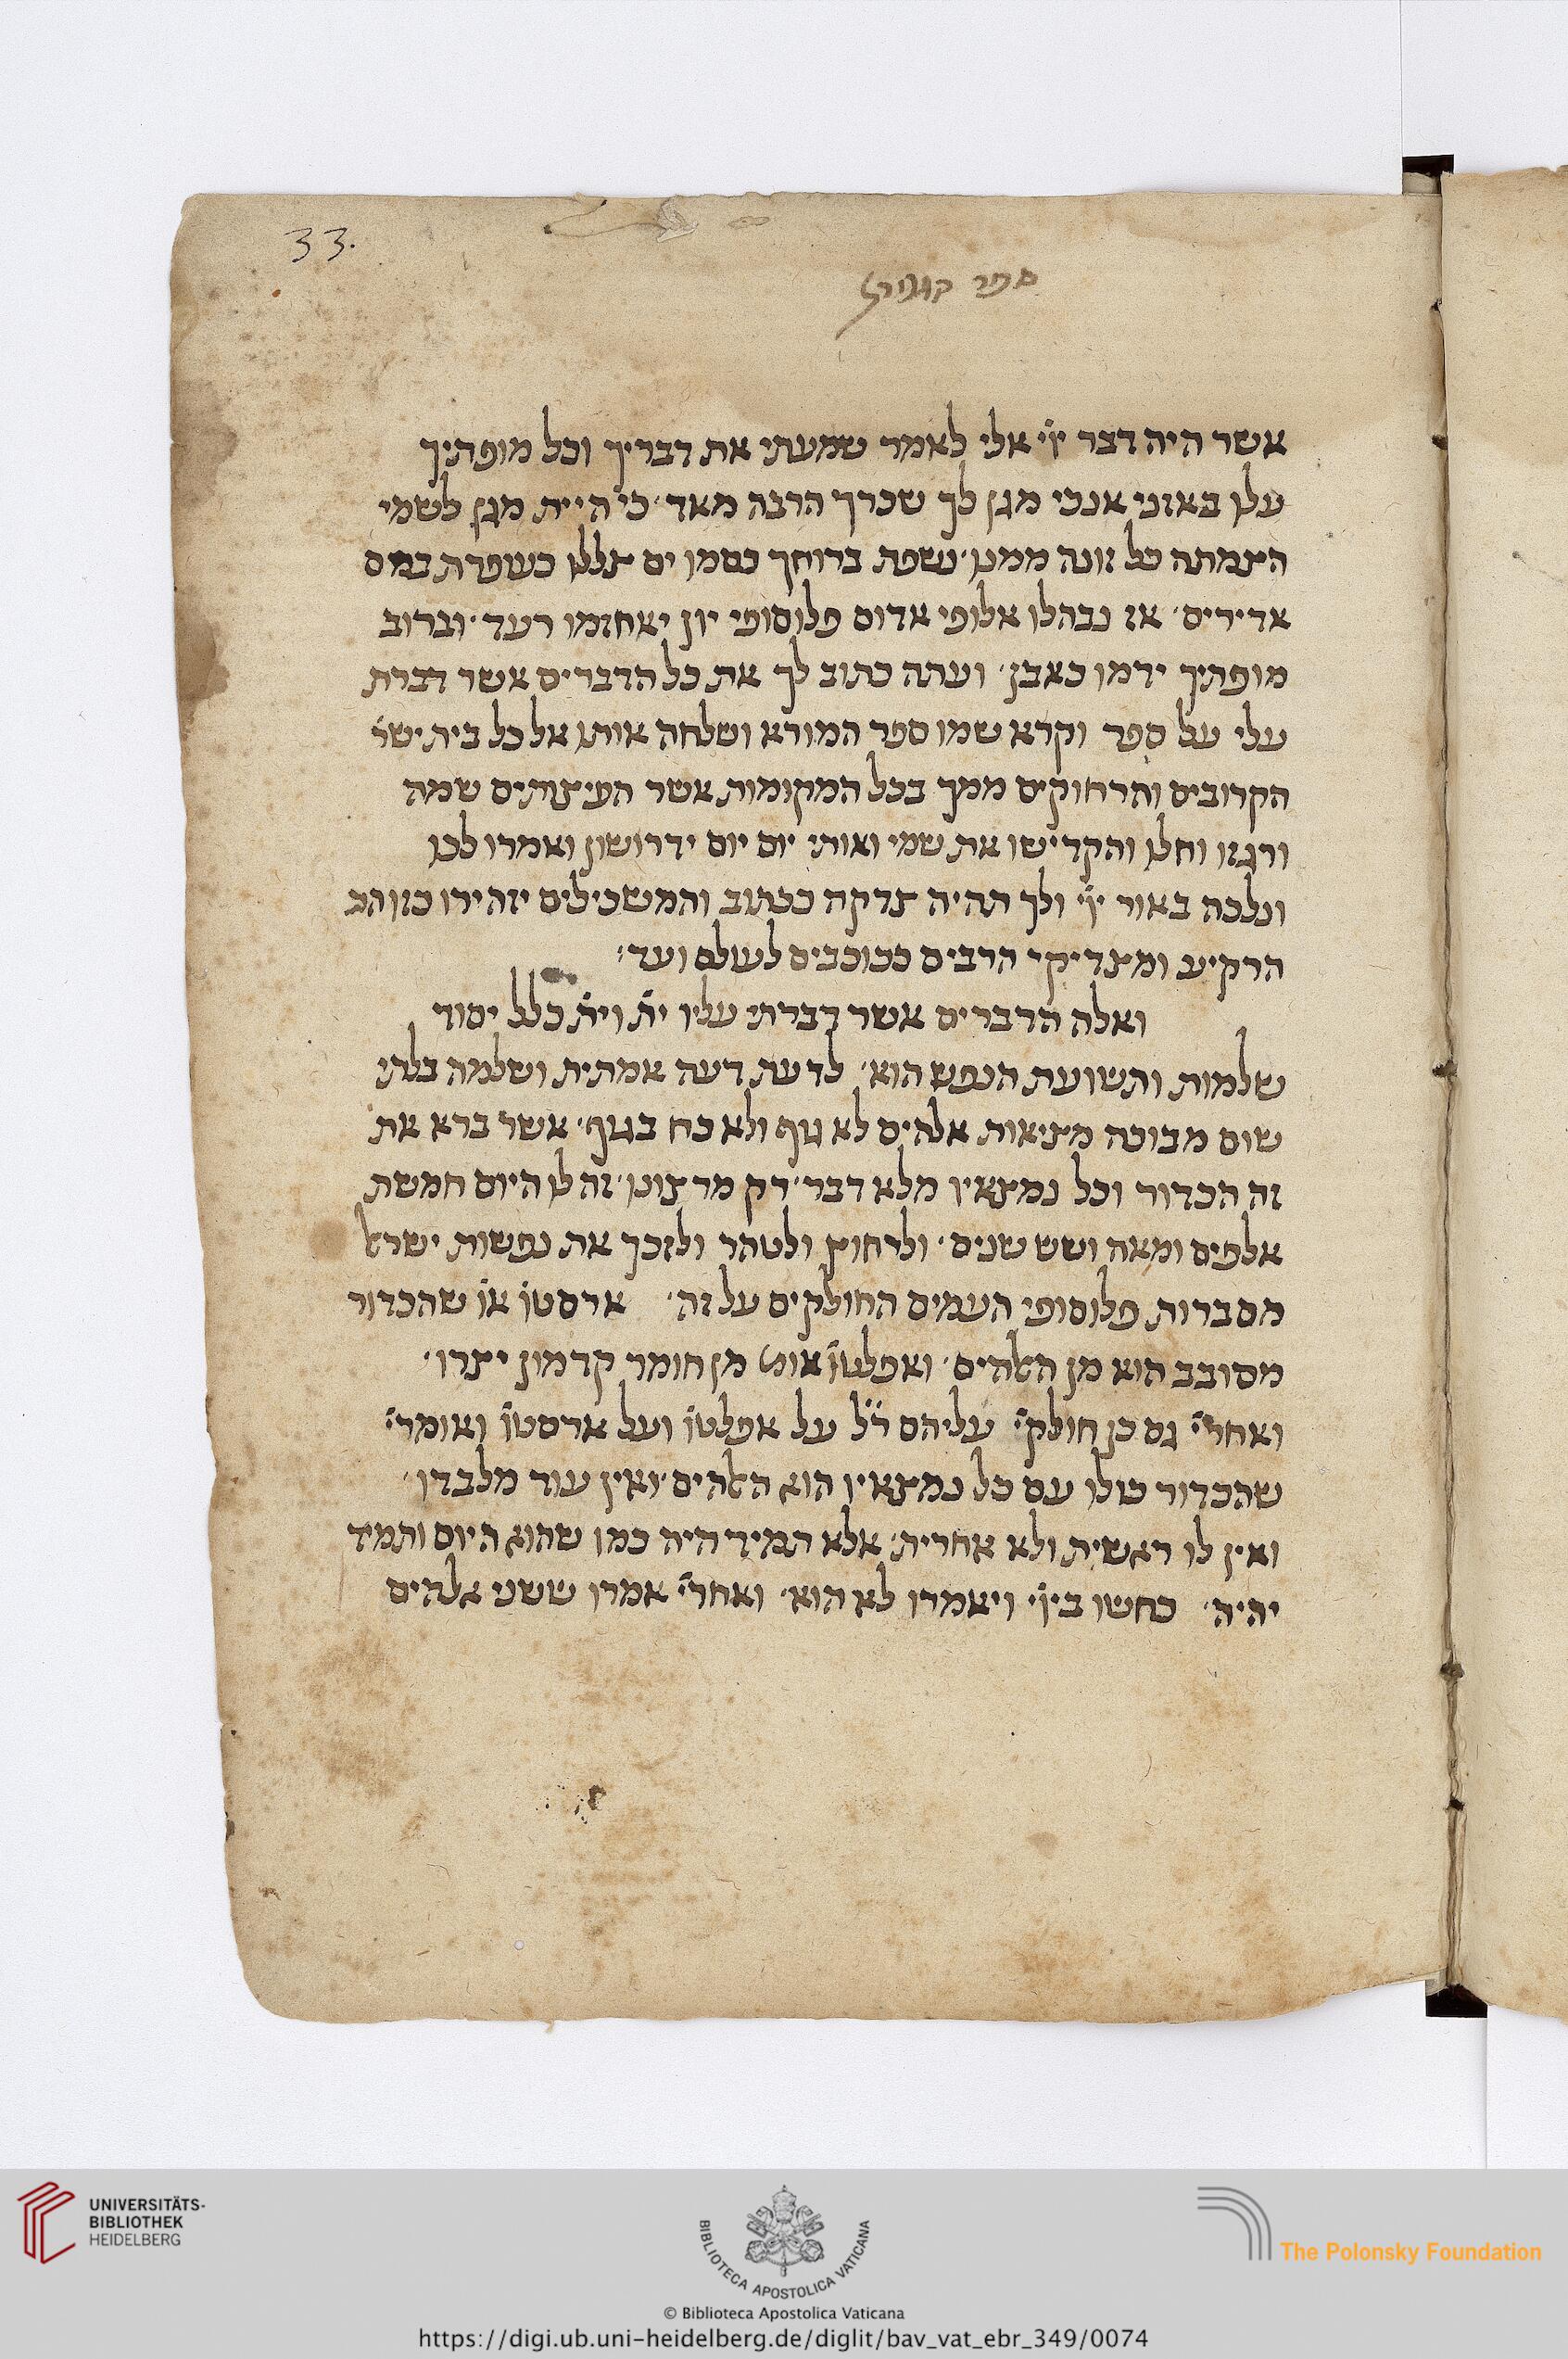 33.
ספר
אשר היה דבר יי׳ אלי לאמר שמעתי את דבריך וכל מופתיך
עלו באזני אנכי מגן לך שכרך הרבה מאד׳ כי היית מגן לשמי
הצמתה כל זונה ממנו׳ נשפת ברוחך כסמו ים צללו כעופרת במים
אדירים׳ אז נבהלו אלופי אדום פלוסופי יון יאחזמו רעד׳ וברוב
מופתיך ידמו כאבן׳ ועתה כתוב לך את כל הדברים אשר דברת
עלי על ספר וקרא שמו ספר המורא ושלחה אותו אל כל בית ישר׳
הקרובים והרחוקים ממך בכל המקומות אשר העיצותים שמה
ורגזו וחלו והקדישו את שמי ואותי יום יום ידרושון ואמרו לכו
ונלכה באור יי׳ ולך תהיה צדקה ככתוב והמשכילים יזהירו כזוהר
הרקיע ומצדיקי הרבים ככוכבים לעולם ועד׳
ואלה הדברים אשר דברתי עליו ית׳ וית׳ כלל יסוד
שלמות ותשועת הנפש הוא׳ לדעת דעה אמתית ושלמה בלתי
שום מבוכה מציאות אלהים לא גוף ולא כח בגוף׳ אשר ברא את
זה הכדור וכל נמצאיו מלא דבר׳ רק מרצונו׳ זה לו היום חמשת
אלפים ומאה ושש שנים׳ ולרחוץ ולטהר ולזכך את נפשות ישראל
מסברות פלוסופי העמים החולקים על זה׳ ארסטו׳ או׳ שהכדור
מסובב הוא מן האלהים׳ ואפלטו׳ אומ׳ מן חומר קדמון יצרו׳
ואחרי׳ גם כן חולקי׳ עליהם ר״ל על אפלטו׳ ועל ארסטו׳ ואומרי׳
שהכדור כולו עם כל נמצאיו הוא האלהים׳ ואין עוד מלבדו׳
ואין לו ראשית ולא אחרית׳ אלא תמיד היה כמו שהוא היום ותמיד
יהיה׳ כחשו ביי׳ ויאמרו לא הוא׳ ואחרי׳ אמרו ששני אלהים
UNIVERSITÄTS-
BIBLIOTHEK
HEIDELBERG
BIBLIOTECA APOSTOLICA VATICANA
The Polonsky Foundation
© Biblioteca Apostolica Vaticana
https://digi.ub.uni-heidelberg.de/diglit/bav_vat_ebr_349/0074